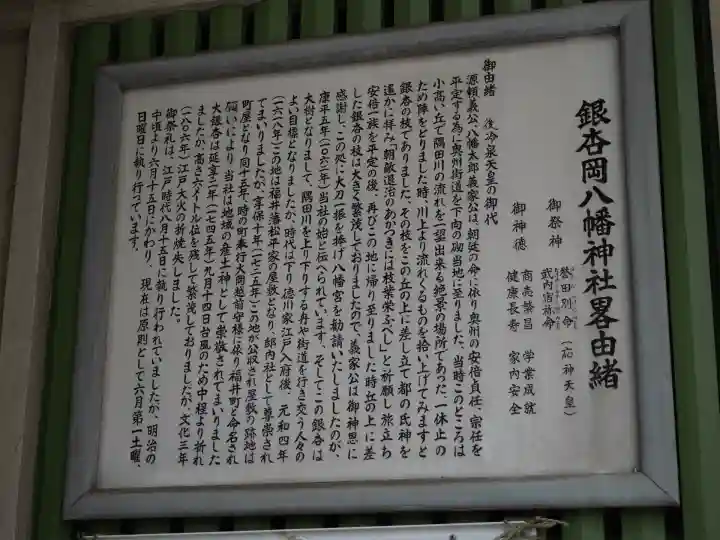 銀杏岡八幡神社畧由緒
御祭神 誉田別命(応神天皇)
武内宿祢命
御神徳 商売繁昌 学業成就
健康長寿 家内安全
御由緒 後冷泉天皇の御代
源頼義公、八幡太郎義家公は、朝廷の命に依り奥州の安倍貞任、宗任を
平定する為に奥州街道を下向の砌当地に至りました。当時このところは
小高い丘で隅田川の流れを一望出来る絶景の場所であった。一休止の
ため陣をとりました時、川上より流れくるものを拾い上げてみますと
銀杏の枝でありました。その枝をこの丘の上に差し立て都の氏神を
遥かに拝み「朝敵退治のあかつきには枝葉栄ふべし」と祈願し旅立わ
安倍一族を平定の後、再びこの地に帰り至りました時丘の上に差
した銀杏の枝は大きく繁茂しておりましたので、義家公は御神恩に
感謝し、この処に大刀一振を捧げ八幡宮を勧請いたしましたのが、
康平五年(一〇六二年)当社の始と伝へられています。そしてこの銀杏は
大樹となりまして、隅田川を上り下りする舟や街道を行き交う人々の
よい目標となりましたが、時代は下り徳川家江戸入府後、元和四年
(一六一八年)この地は福井藩松平家の屋敷となり、邸内社として尊崇され
てまいりましたが、享保十年(一七二五年)この地が公収され屋敷の跡地は
町屋となり同十五年、時の町奉行大岡越前守様に依り福井町と命名され
願いにより当社は地域の産土神として崇敬されてまいりました
大銀杏は延享二年(一七四五年)九月十四日台風のため中程より折れ
ましたが、高さ六メートル位を残して繁茂しておりましたが、文化三年
(一八〇六年)江戸大火の折焼失しました。
御祭礼は、江戸時代八月十五日に執り行われていましたが、明治の
中頃より六月十五日にかわり、現在は原則として六月第一土曜、
日曜日に執り行っています。